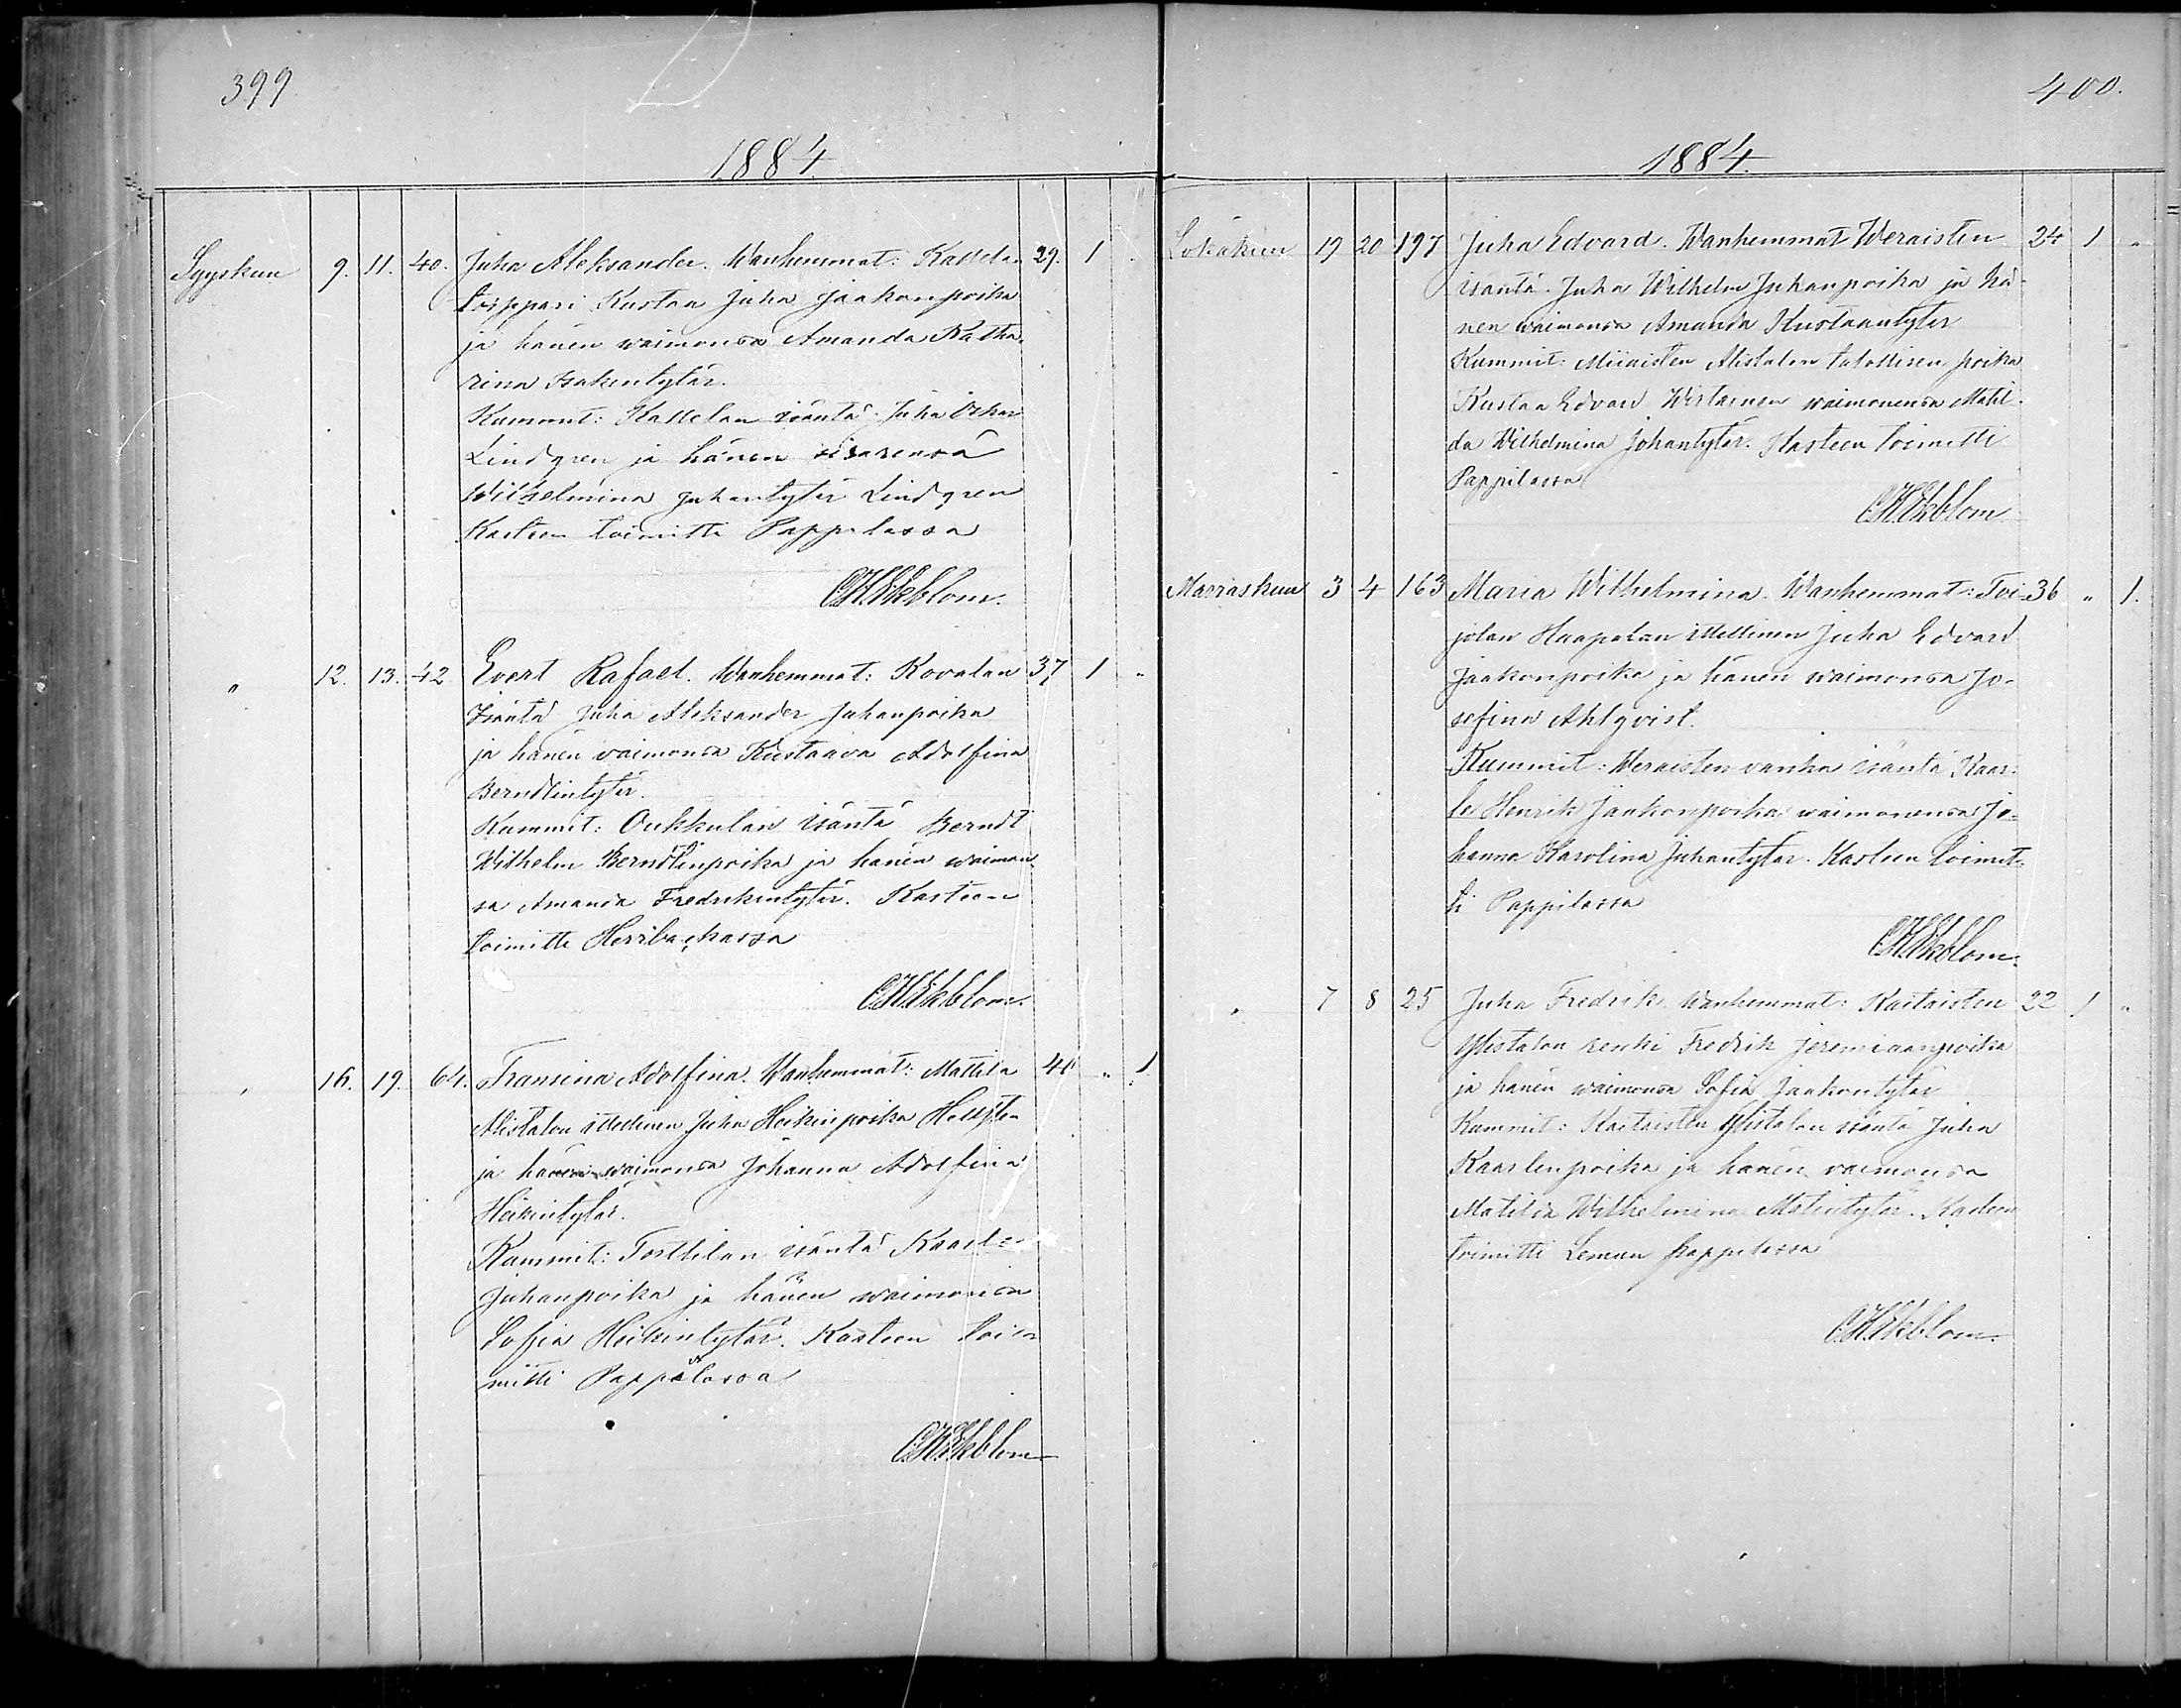 399.
1884.
Syyskuu 9. 11. 40. Juha Aleksander. Wanhemmat: Kasselan 29. 1
torppari Kustaa Juha Jaakonpoika
ja hänen waimonsa Amanda Katha-
rina Isakintytär.
Kummit: Kasselan isäntä Juha Oskar
Lindgren ja hänen sisarensa
Wilhelmina Juhantytär Lindgren
Kasteen toimitti Pappilassa
CHEkblom.
" 12. 13. 42. Evert Rafael. Wanhemmat: Kovalan 37 1 "
Isäntä Juha Aleksander Juhanpoika
ja hänen vaimonsa Kustaava Adolfina
Berndtintytär.
Kummit: Oukkulan isäntä Berndt
Wilhelm Berndtinpoika ja hänen waimon-
sa Amanda Fredrikintytär. Kasteen
toimitti
CHEkblom.
" 16. 19. 64. Fransina Adolfina. Wanhemmat: Mattila 41 " 1.
Alistalon itsellinen Juha Heikinpoika Hellsten
ja hänen waimonsa Johanna Adolfina
Heikintytär.
Kummit: Torttilan isäntä Kaarle
Juhanpoika ja hänen waimonsa
Sofia Heikintytär. Kasteen toi-
mitti Pappilassa
CHEkblom
400.
1884.
Lokakuu 19 20 197 Juha Edvard. Wanhemmat Weraisten 24 1 "
isäntä Juha Wilhelm Juhanpoika ja hä-
nen waimonsa Amanda Kustaantytär
Kummit: Alistalon talollisen poika
Kustaa Edvard waimonensa Matil-
da Wilhelmina Johantytär. Kasteen toimitti
Pappilassa
CHEkblom
Marraskuu 3 4 163 Maria Wilhelmina. Wanhemmat: Toi- 36 " 1.
jolan Haapalan itsellinen Juha Edvard
Jaakonpoika ja hänen waimonsa Jo-
sefina Ahlqvist.
Kummit: Weraisten vanha isäntä Kaar-
le Henrik Jaakonpoika waimonensa Jo-
hanna Karolina Juhantytär. Kasteen toimit-
ti Pappilassa
CHEkblom.
" 7 8 25 Juha Fredrik. Wanhemmat: Kaitaisten 22 1 "
Ylistalon renki Fredrik Jeremiaanpoika
ja hänen waimonsa Sofia Jaakontytär
Kummit: Kaitaisten Ylistalon isäntä Juha
Kaarlenpoika ja hänen vaimonsa
Matilda Wilhelmina Matintytär. Kasteen
toimitti Lemun pappilassa
CHEkblom.